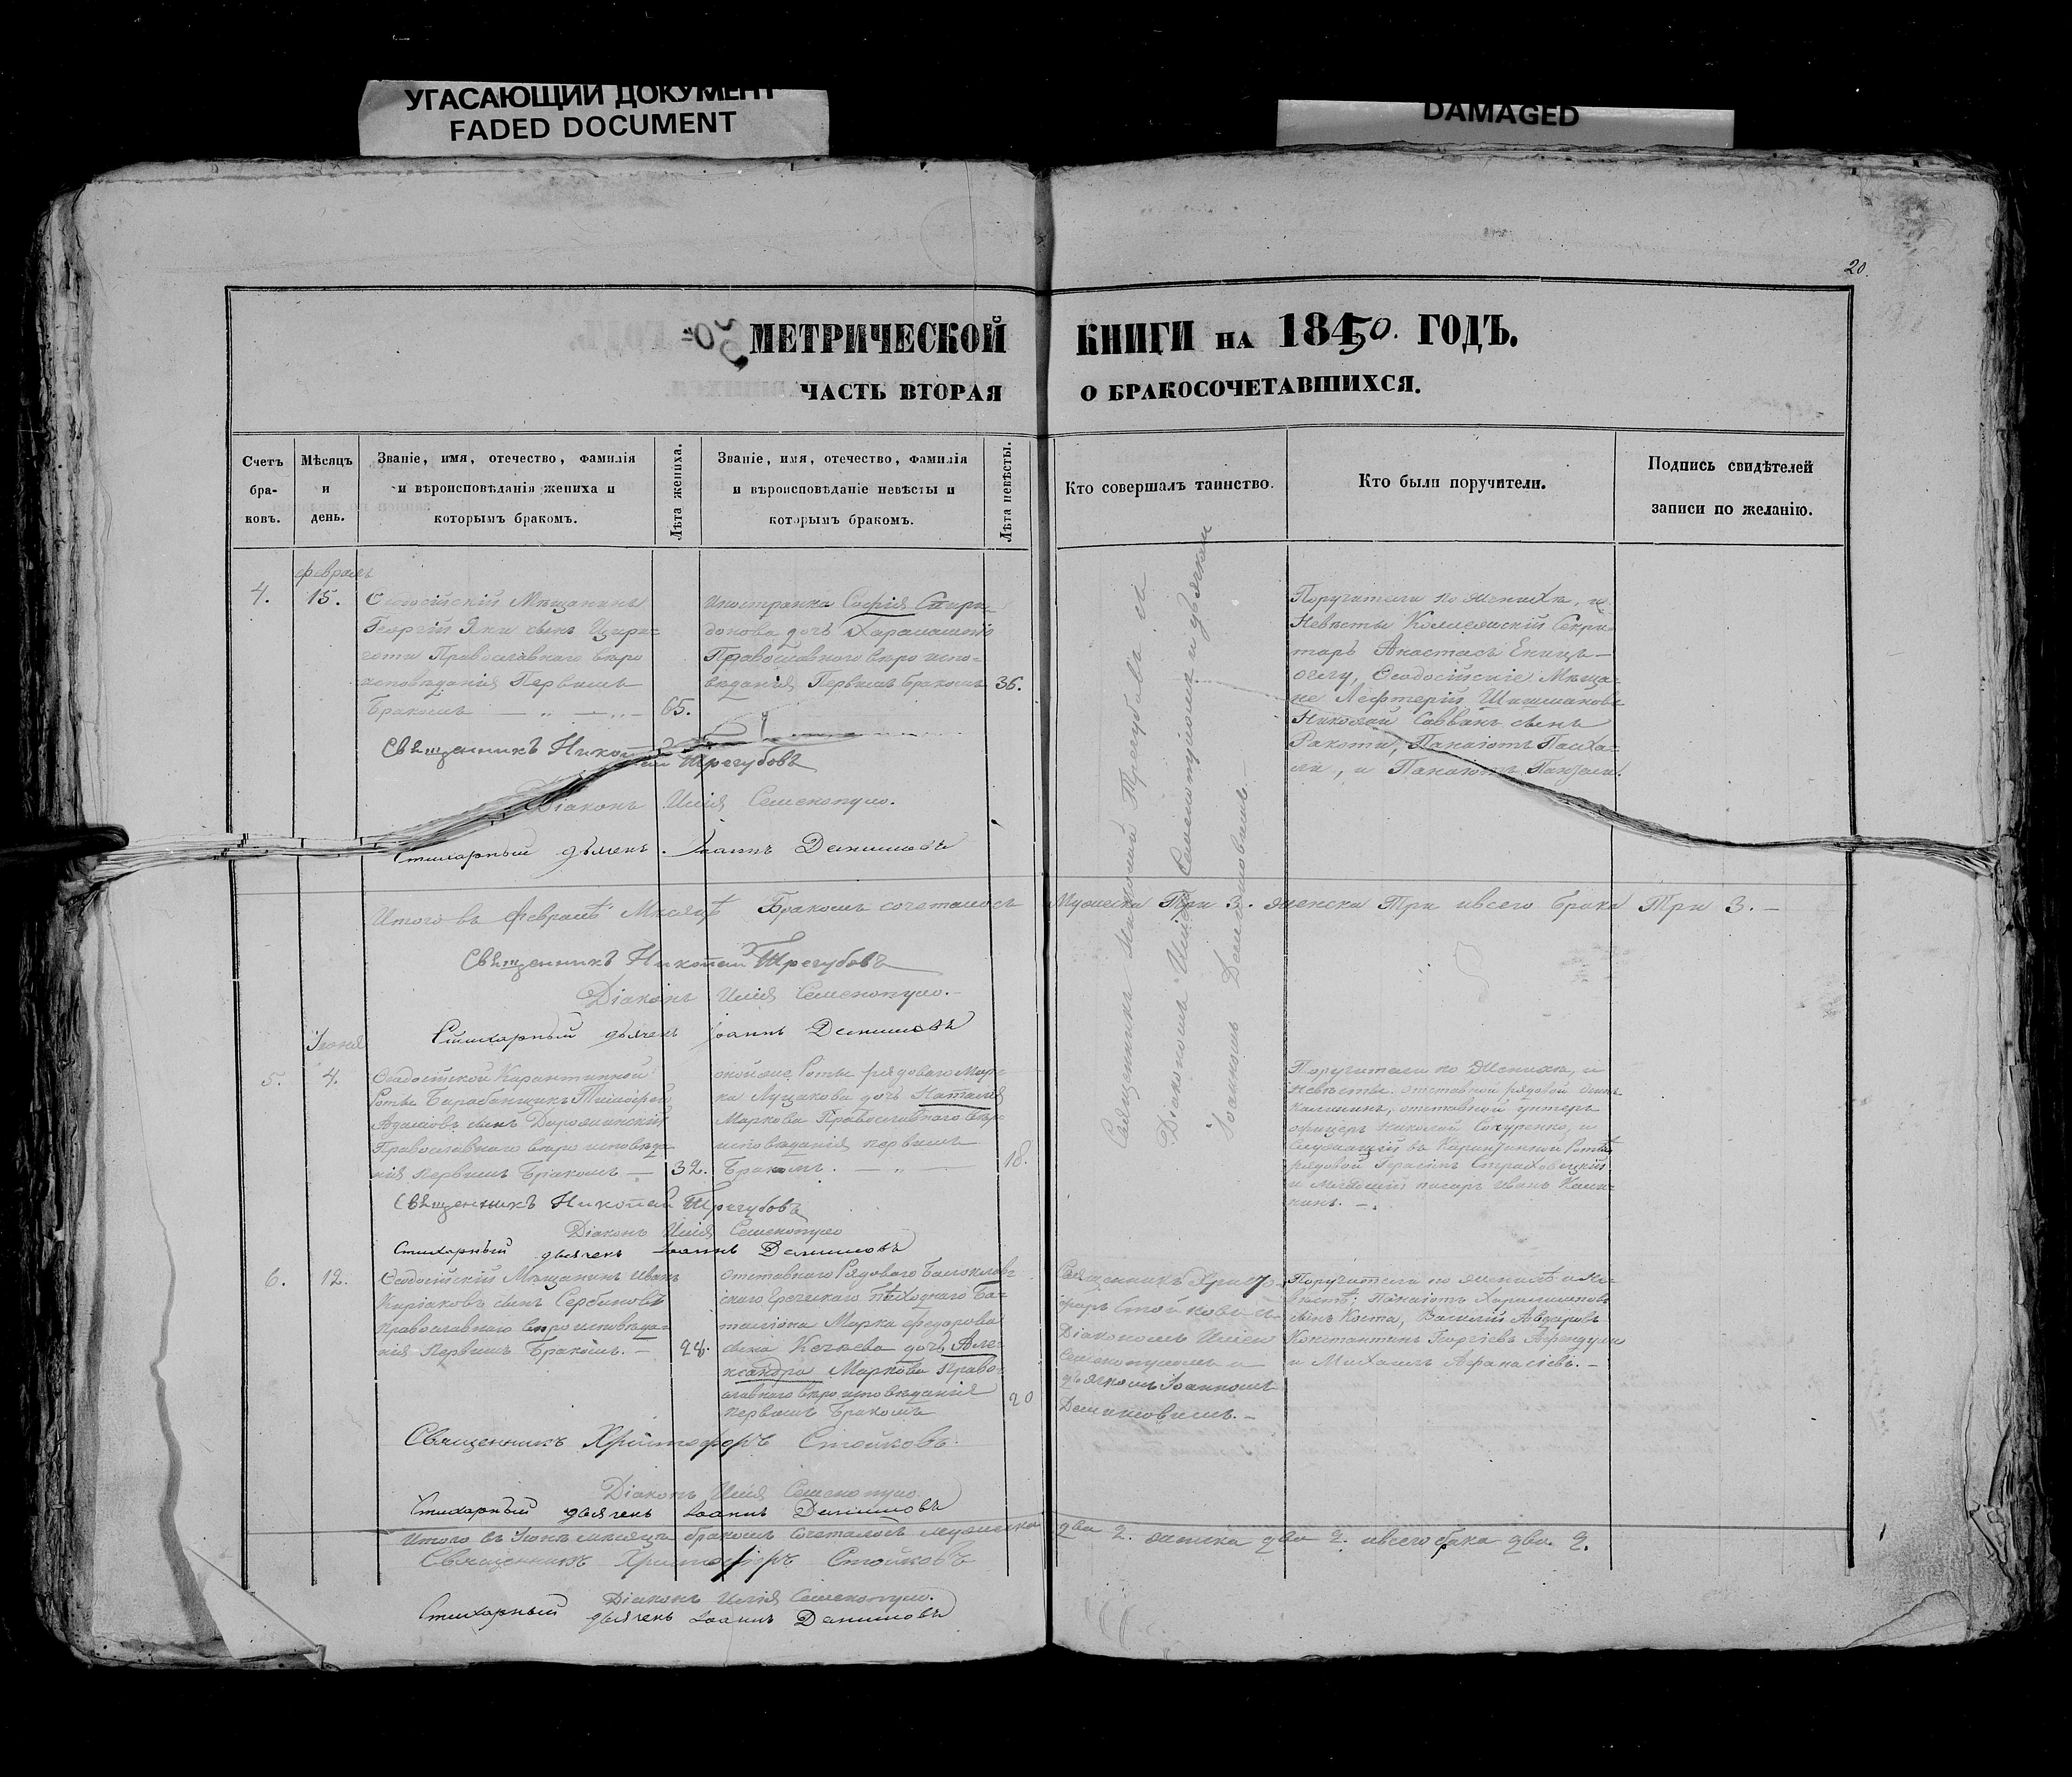 УГАСАЮЩИЙ ДОКУМЕНТ
FADED DOCUMENT
DAMAGED
20.
МЕТРИЧЕСКОЙ КНИГИ НА 18450. ГОДЪ.
ЧАСТЬ ВТОРАЯ О БРАКОСОЧЕТАВШИХСЯ.
Счетъ
бра-
ковъ.
Мѣсяцъ
и
день.
Званіе, имя, отечество, фамилія
и вѣроисповѣданія жениха и
которымъ бракомъ.
Лѣта жениха.
Званіе, имя, отечество, фамилія
и вѣроисповѣданіе невѣсты и
которымъ бракомъ.
Лѣта невѣсты.
Кто совершалъ таинство.
Кто были поручители.
Подпись свидѣтелей
записи по желанію.
февраль
4.
15.
Ѳеодосійскій Мѣщанинъ
Георгій Яни сынъ
Православнаго вѣро
исповѣданія Первымъ
Бракомъ
65.
Иностранка Софія Спири-
донова дочь
Православнаго вѣро испо-
вѣданія Первымъ бракомъ
36.
Поручители по женихѣ, и
Невѣсты Коллежскій Секре-
тарь Анастасъ Еницъ-
оглу, Ѳеодосійскіе Мѣща-
не Лефтерій Шишмановъ
Николай Саввинъ сынъ
Ракоти, Панаіотъ Пасха-
ли, и Панаіотъ
Священникъ Николай Трегубовъ
Діаконъ Илія Семенопуло.
Стихарный дьячекъ Іоаннъ Данииловъ
Священникъ Николай Трегубовъ съ
Діакономъ Иліею Семенопуломъ и дьячкомъ
Іоанномъ
Итого въ февралѣ Мѣсяцѣ Бракомъ сочеталось Мужеска Три 3. женска Три ивсего брака Три 3. -
Священникъ Николай Трегубовъ
Діаконъ Илія Семенопуло.-
Стихарный дьячекъ Іоаннъ Данииловъ
Іюня
5.
4.
Ѳеодосійской Карантинной
Роты Барабанщикъ Тимофей
Адамовъ сынъ
Православнаго вѣро исповѣда-
нія первымъ Бракомъ -
32.
оной же Роты рядоваго Мар-
ка Лущакова дочь Наталія
Маркова Православнаго вѣро
исповѣданія первымъ
Бракомъ.
18.
Поручители по Женихѣ, и
Невѣсты. отставной рядовой
Калининъ, отставной унтеръ
офицеръ Николай и
Служащій въ Карантинной Ротѣ
рядовой Герасимъ
и Младшій писарь Иванъ Кали-
нинъ. -
Священникъ Николай Трегубовъ
Діаконъ Илія Семенопуло
Стихарный дьячекъ Іоаннъ Данииловъ
6.
12.
Ѳеодосійскій Мѣщанинъ Иванъ
Киріаковъ сынъ Сербиновъ
Православнаго вѣро исповѣда-
нія Первымъ Бракомъ. -
28.
отставнаго Рядоваго Балаклав-
скаго Греческаго пѣходнаго Ба-
таліона Марка Федорова
сына дочь Але-
ксандра Маркова Право-
славнаго вѣро исповѣданія
первымъ Бракомъ
20
Священникъ Христо-
форъ Стойковъ съ
Діакономъ Иліею
Семенопуломъ и
дьячкомъ Іоанномъ
Данииловымъ. -
Поручители по женихѣ и не-
вѣстѣ: Панаіотъ Харалампіевъ
сынъ Коста, Василій
Константинъ Георгіевъ
и Михаилъ Афанасіевъ. -
Священникъ Христофоръ Стойковъ.
Діаконъ Илія Семенопуло.
Стихарный дьячекъ Іоаннъ Данииловъ
Итого въ Іюнѣ мѣсяцѣ бракомъ Сочеталось мужеска два 2. женска два 2. ивсего брака два. 2.
Священникъ Христофоръ Стойковъ
Діаконъ Илія Семенопуло.
Стихарный дьячекъ Іоаннъ Данииловъ